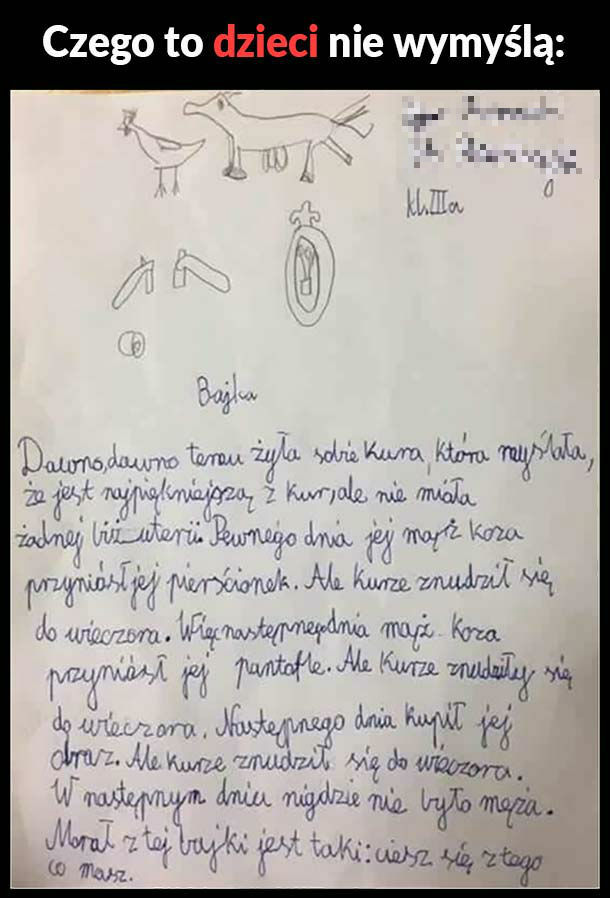 Czego to dzieci nie wymyślą:
kl. III a
Bajka
Dawno, dawno temu żyła sobie kura, która myślała,
że jest najpiękniejszą z kur, ale nie miała
żadnej biżuterii. Pewnego dnia jej mąż koza
przyniósł jej pierścionek. Ale kurze znudził się
do wieczora. Więc następnego dnia mąż koza
przyniósł jej pantofle. Ale kurze znudziły się
do wieczora. Następnego dnia kupił jej
obraz. Ale kurze znudził się do wieczora.
W następnym dniu nigdzie nie było męża.
Morał z tej bajki jest taki: ciesz się z tego
co masz.